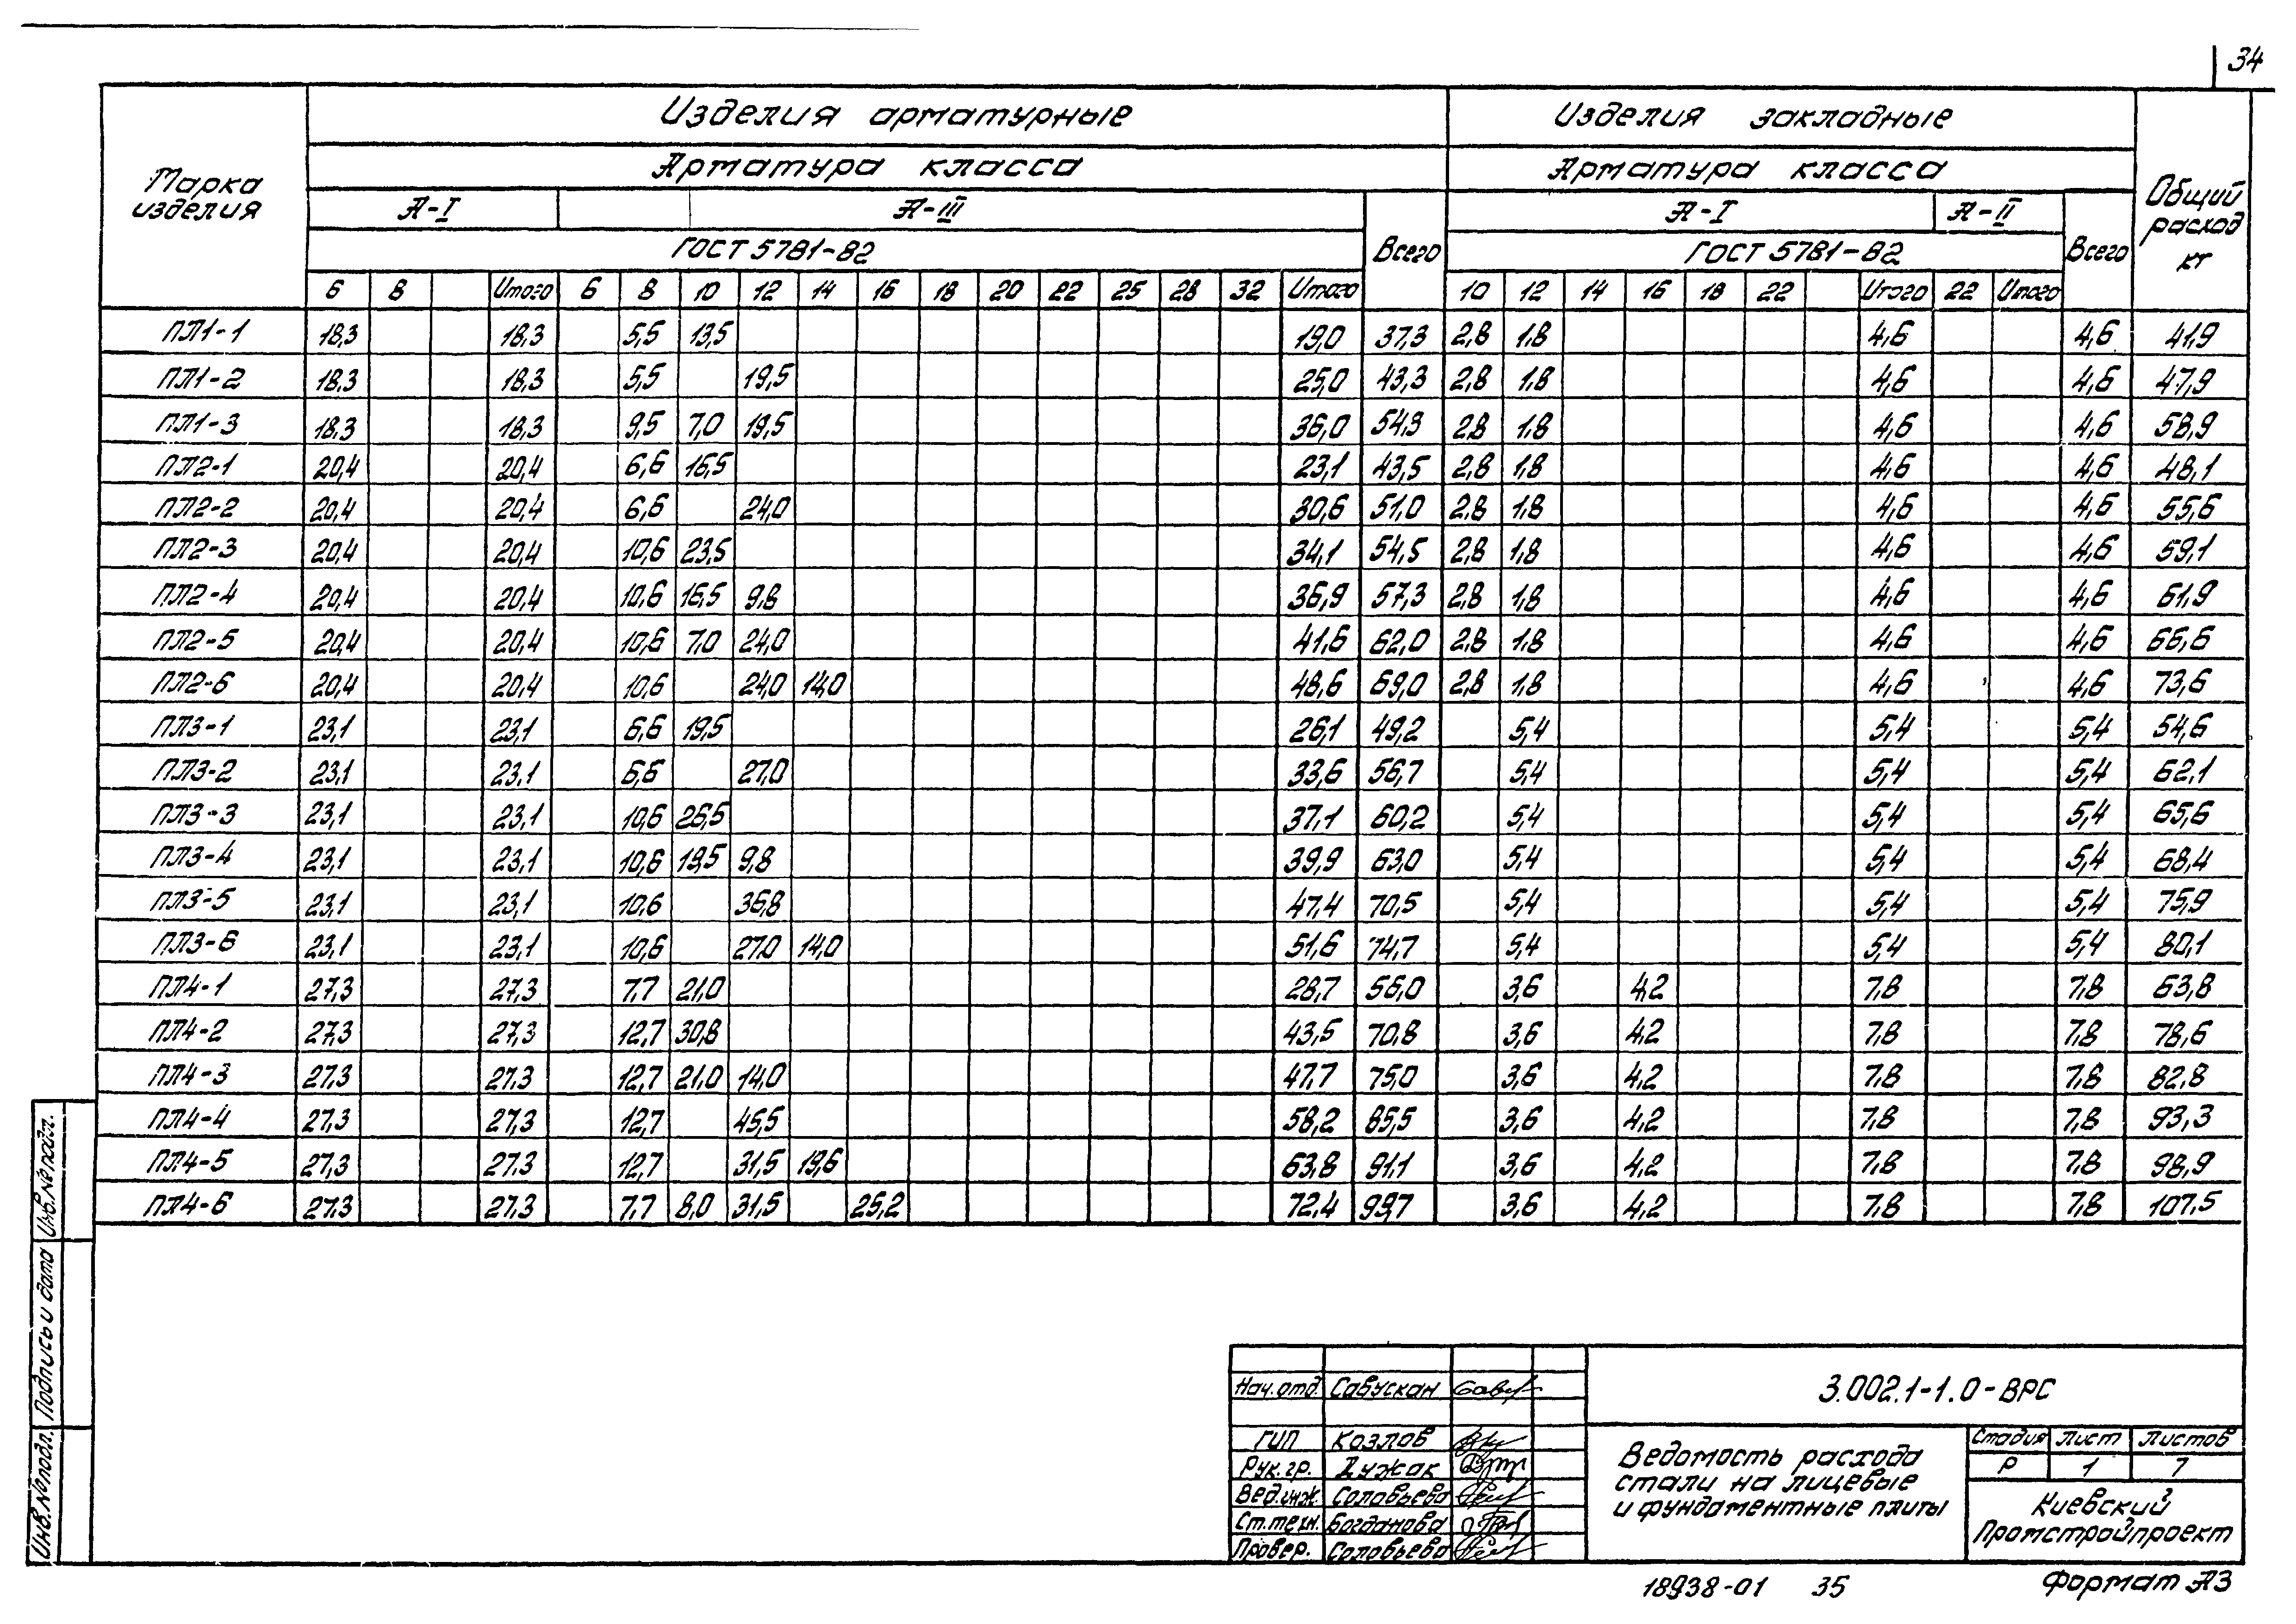 34
Марка изделия
Изделия арматурные
Изделия закладные
Общий расход кг
Арматура класса
Арматура класса
А-I А-III Всего А-I А-II Всего
ГОСТ 5781-82 ГОСТ 5781-82
6 8 Итого 6 8 10 12 14 16 18 20 22 25 28 32 Итого 10 12 14 16 18 22 Итого 22 Итого
ПЛ1-1 18,3 18,3 5,5 13,5 19,0 37,3 2,8 1,8 4,6 4,6 41,9
ПЛ1-2 18,3 18,3 5,5 19,5 25,0 43,3 2,8 1,8 4,6 4,6 47,9
ПЛ1-3 18,3 18,3 9,5 7,0 19,5 36,0 54,3 2,8 1,8 4,6 4,6 58,9
ПЛ2-1 20,4 20,4 6,6 16,5 23,1 43,5 2,8 1,8 4,6 4,6 48,1
ПЛ2-2 20,4 20,4 6,6 24,0 30,6 51,0 2,8 1,8 4,6 4,6 55,6
ПЛ2-3 20,4 20,4 10,6 23,5 34,1 54,5 2,8 1,8 4,6 4,6 59,1
ПЛ2-4 20,4 20,4 10,6 16,5 9,8 36,9 57,3 2,8 1,8 4,6 4,6 61,9
ПЛ2-5 20,4 20,4 10,6 7,0 24,0 41,6 62,0 2,8 1,8 4,6 4,6 66,6
ПЛ2-6 20,4 20,4 10,6 24,0 14,0 48,6 69,0 2,8 1,8 4,6 4,6 73,6
ПЛ3-1 23,1 23,1 6,6 19,5 26,1 49,2 5,4 5,4 5,4 54,6
ПЛ3-2 23,1 23,1 6,6 27,0 33,6 56,7 5,4 5,4 5,4 62,1
ПЛ3-3 23,1 23,1 10,6 26,5 37,1 60,2 5,4 5,4 5,4 65,6
ПЛ3-4 23,1 23,1 10,6 19,5 9,8 39,9 63,0 5,4 5,4 5,4 68,4
ПЛ3-5 23,1 23,1 10,6 36,8 47,4 70,5 5,4 5,4 5,4 75,9
ПЛ3-6 23,1 23,1 10,6 27,0 14,0 51,6 74,7 5,4 5,4 5,4 80,1
ПЛ4-1 27,3 27,3 7,7 21,0 28,7 56,0 3,6 4,2 7,8 7,8 63,8
ПЛ4-2 27,3 27,3 12,7 30,8 43,5 70,8 3,6 4,2 7,8 7,8 78,6
ПЛ4-3 27,3 27,3 12,7 21,0 14,0 47,7 75,0 3,6 4,2 7,8 7,8 82,8
ПЛ4-4 27,3 27,3 12,7 45,5 58,2 85,5 3,6 4,2 7,8 7,8 93,3
ПЛ4-5 27,3 27,3 12,7 31,5 19,6 63,8 91,1 3,6 4,2 7,8 7,8 98,9
ПЛ4-6 27,3 27,3 7,7 8,0 31,5 25,2 72,4 99,7 3,6 4,2 7,8 7,8 107,5
Инв.№ подл. Подпись и дата Инв.№ подл.
Нач.отд. Савускан
ГИП Козлов
Рук.гр. Дужак
Вед.инж. Соловьева
Ст.техн. Богданова
Провер. Соловьева
3.002.1-1.0-ВРС
Ведомость расхода
стали на лицевые
и фундаментные плиты
Стадия Лист Листов
Р 1 7
Киевский
Промстройпроект
18938-01 35
Формат А3